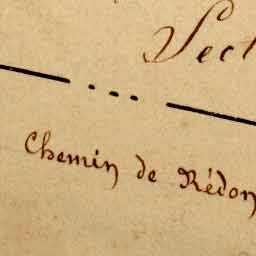 Sect
Chemin de Rédon